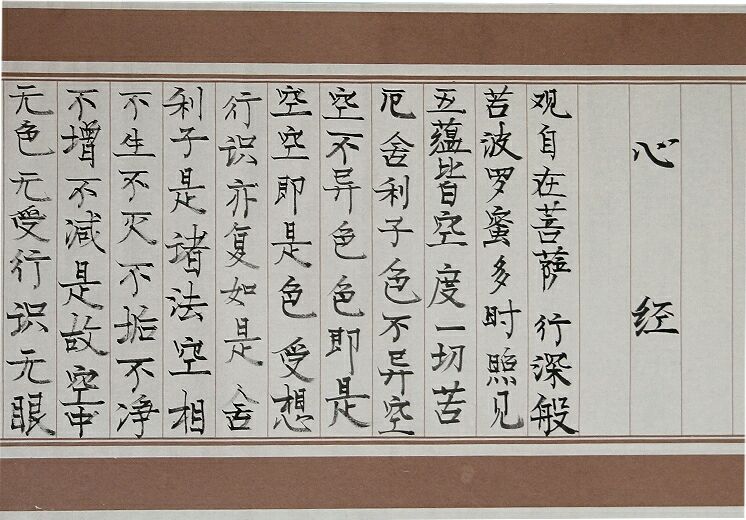 心经
观自在菩萨行深般
苦波罗蜜多时照见
五蕴皆空度一切苦
厄舍利子色不异空
空不异色色即是
空空即是色受想
行识亦复如是舍
利子是诸法空相
不生不灭不垢不净
不增不减是故空中
无色无受行识无眼